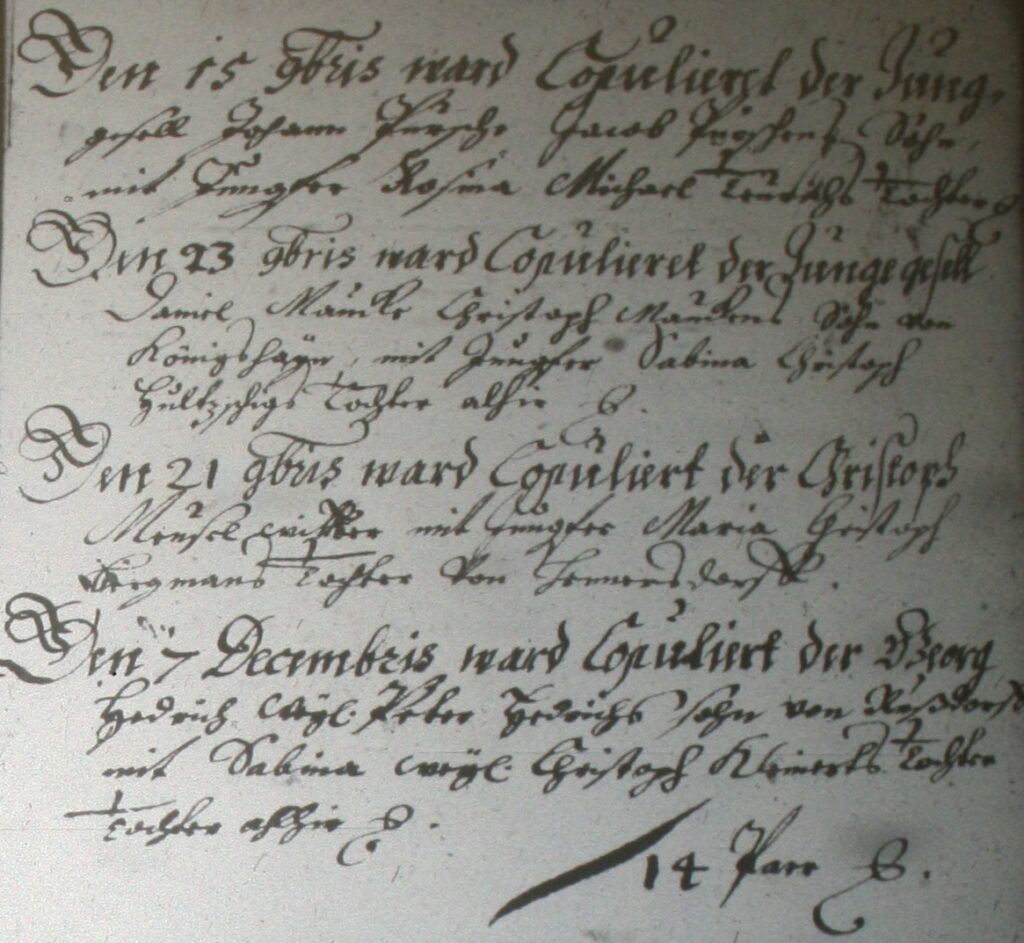 Den 15 9bris ward Copulieret der Jung-
gesell Johann Pursche Jacob Purschens Sohn,
mit Jungfer Rosina Michael Tochter
Den 23 9bris ward Copulieret der Junge gesell
Daniel Maucke Christoph Mauckens Sohn von
Königshayn, mit Jungfer Sabina Christoph
Hultzschigs Tochter alhir
Den 21 9bris ward Copuliert der Christoph
Meusel mit Jungfer Maria Christoph
Bergmans Tochter Von Hennersdorff.
Den 7 Decembris ward Copuliert der George
Hedrich Weyl. Peter Hedrichs sohn von Rußdorff
mit Sabina weyl. Christoph Kleinerts Tochter
Tochter alhir
14 Paar